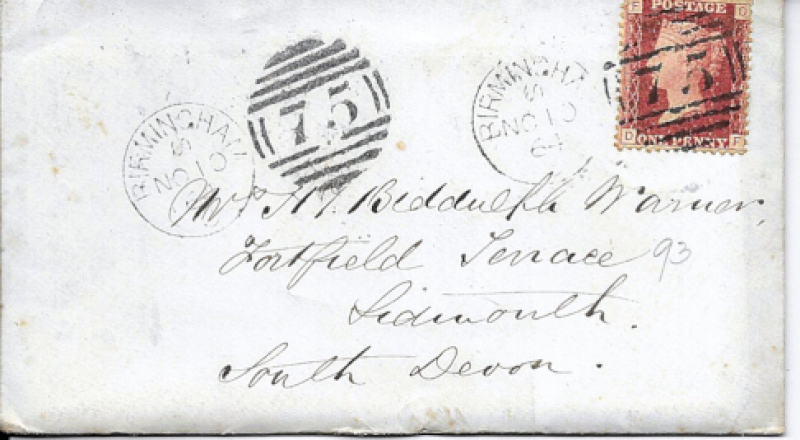 F G
POSTAGE
75
D F
ONE PENNY
BIRMINGHAM
S
NO 10
64
75
BIRMINGHAM
S
NO 10
Biddulph Warner,
Fortfield Terrace 93
Sidmouth.
South Devon.